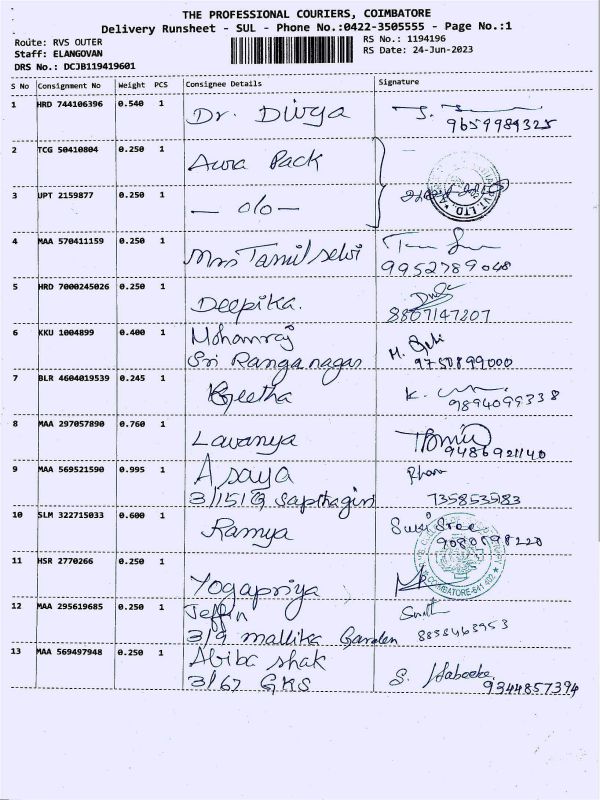 THE PROFESSIONAL COURIERS, COIMBATORE
Delivery Runsheet - SUL - Phone No.:0422-3505555 - Page No.:1
Route: RVS OUTER
Staff: ELANGOVAN
DRS No.: DCJB119419601
RS No.: 1194196
RS Date: 24-Jun-2023
S No Consignment No Weight PCS Consignee Details Signature
1 HRD 744106396 0.540 1 Dr. Divya
9659989325
2 TCG 50410804 0.250 1 Aura Pack
3 UPT 2159877 0.250 1 — o/o —
4 MAA 570411159 0.250 1 Mrs Tamil selvi
9952789048
5 HRD 7000245026 0.250 1 Deepika.
8807147207
6 KKU 1004899 0.400 1 Mohanraj
Sri Ranga nagar
9750899000
7 BLR 4604019539 0.245 1 Geetha K.
9894099338
8 MAA 297057890 0.760 1 Lavanya
9486921140
9 MAA 569521590 0.995 1 Asaya
3/151 G Sapthagiri 735853583
10 SLM 322715033 0.600 1 Ramya Suji Sree
9080598220
11 HSR 2770266 0.250 1 Yogapriya
COIMBATORE-641 402
12 MAA 295619685 0.250 1 Jeffin
3/9 mallika Garden 8838463953
13 MAA 569497948 0.250 1 Abiba shak
3/67 GKS S. Habeeba
9344857394